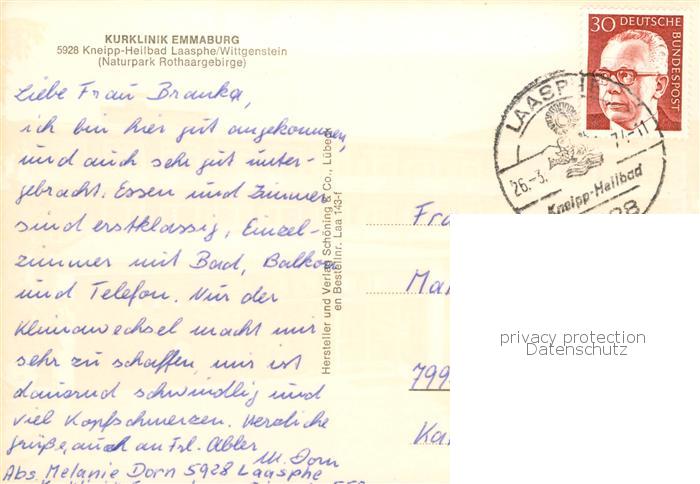 KURKLINIK EMMABURG
5928 Kneipp-Heilbad Laasphe/Wittgenstein
(Naturpark Rothaargebirge)
Liebe Frau Branka,
ich bin hier gut angekommen,
und auch sehr gut unter-
gebracht. Essen und Zimmer
sind erstklassig, Einzel-
zimmer mit Bad, Balkon
und Telefon. Nur der
Klimawechsel macht mir
sehr zu schaffen, mir ist
dauernd schwindlig und
viel Kopfschmerzen. Herzliche
Grüße, auch an Frl. Abler
M. Dorn
Abs. Melanie Dorn 5928 Laasphe
Hersteller und Verlag Schöning & Co., Lübeck
en Bestellnr. Laa 143-f
30 DEUTSCHE
BUNDESPOST
LAASPHE
26.-3.
Kneipp-Heilbad
Fra
799
Ka
privacy protection
Datenschutz